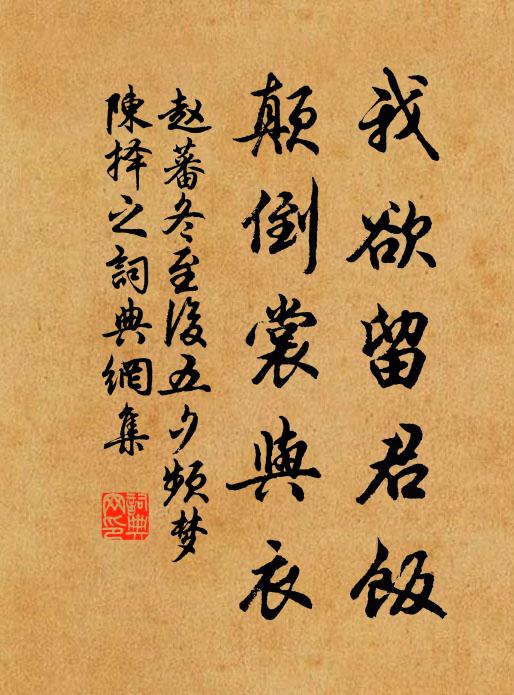 我欲留君飯
顛倒裳與衣
赵蕃冬至後五夕頻梦
陳择之詞典網集
詞典
网印